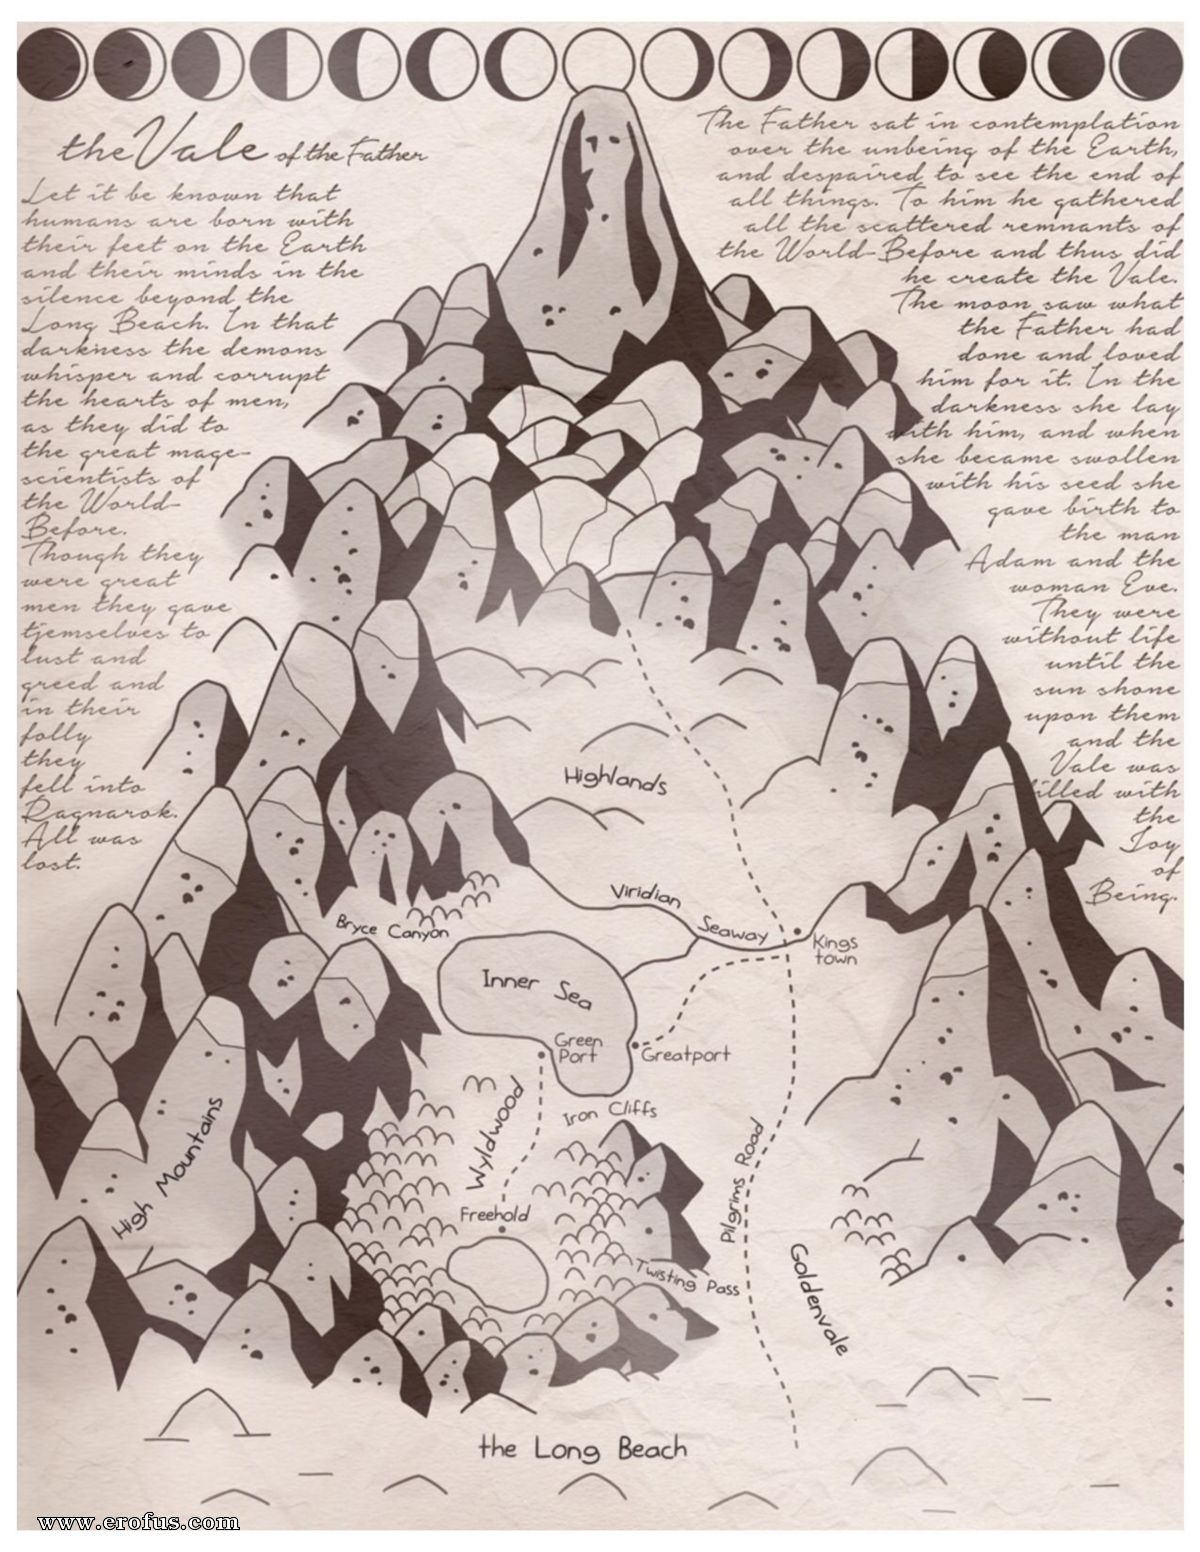 the Vale of the Father
Let it be known that
humans are born with
their feet on the Earth
and their minds in the
silence beyond the
Long Beach. In that
darkness the demons
whisper and corrupt
the hearts of men,
as they did to
the great mage-
scientists of
the World-
Before.
Though they
were great
men they gave
tjemselves to
lust and
greed and
in their
folly
they
fell into
Ragnarok.
All was
lost.
The Father sat in contemplation
over the unbeing of the Earth,
and despaired to see the end of
all things. To him he gathered
all the scattered remnants of
the World-Before and thus did
he create the Vale.
The moon saw what
the Father had
done and loved
him for it. In the
darkness she lay
with him, and when
she became swollen
with his seed she
gave birth to
the man
Adam and the
woman Eve.
They were
without life
until the
sun shone
upon them
and the
Vale was
filled with
the
Joy
of
Being.
Highlands
Viridian Seaway
Kings
town
Bryce Canyon
Inner Sea
Green
Port
Greatport
Iron Cliffs
Wyldwood
High Mountains
Freehold
Pilgrims Road
Twisting Pass
Goldenvale
the Long Beach
www.erofus.com